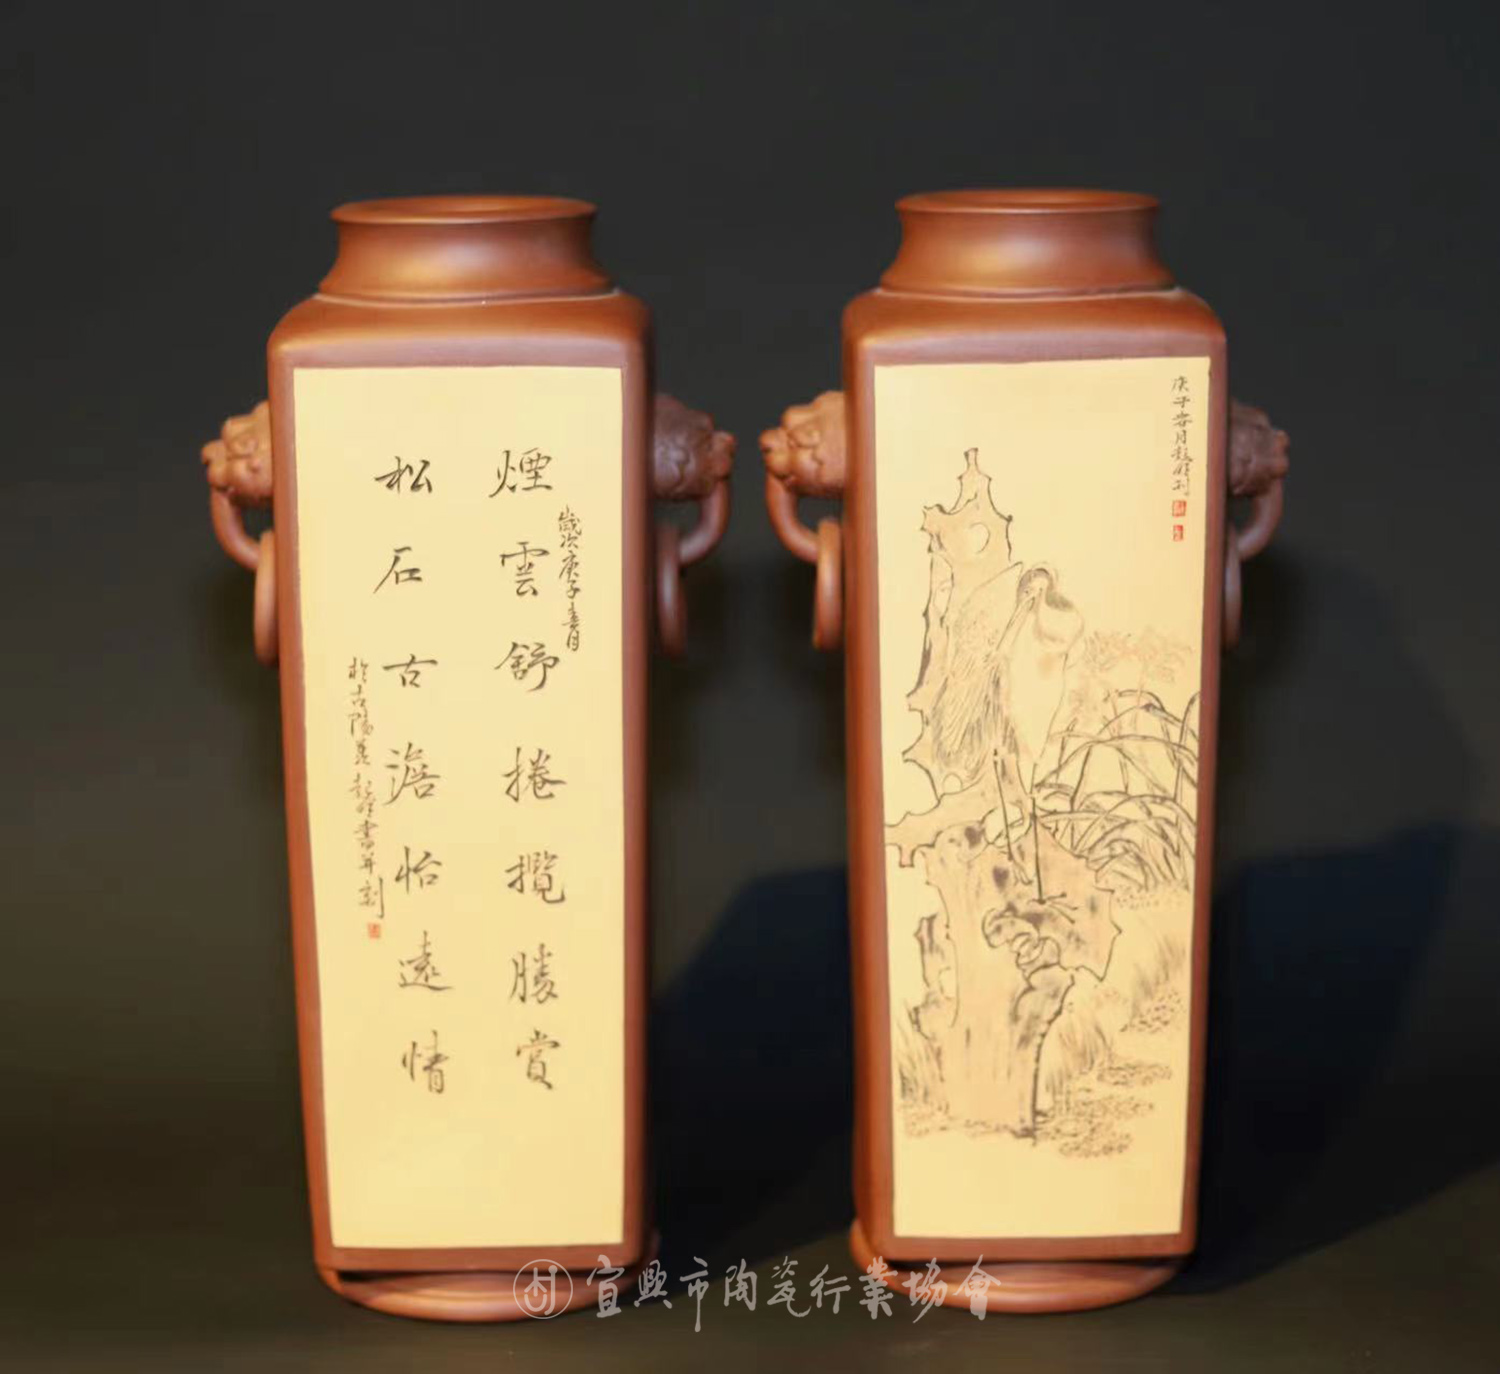 歲次庚子春月
煙雲舒捲攬勝賞
松石古澹怡遠情
於古陽羨起峰書并刻
庚子春月起峰刊
宜興市陶瓷行業協會